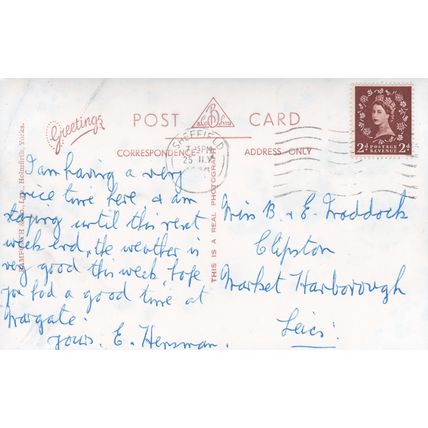 Greetings
POST CARD
CORRESPONDENCE ADDRESS ONLY
SHEFFIELD
25 JLY
2D POSTAGE REVENUE 2D
BAMFORTH & Co., Ltd., Holmfirth, Yorks.
THIS IS A REAL PHOTOGRAPH
I am having a very
nice time here & am
staying until this next
week end, the weather is
very good this week, hope
you had a good time at
Margate.
yours. E. Hensman.
Miss B. & E. Maddock
Clipston
Market Harborough
Leics: